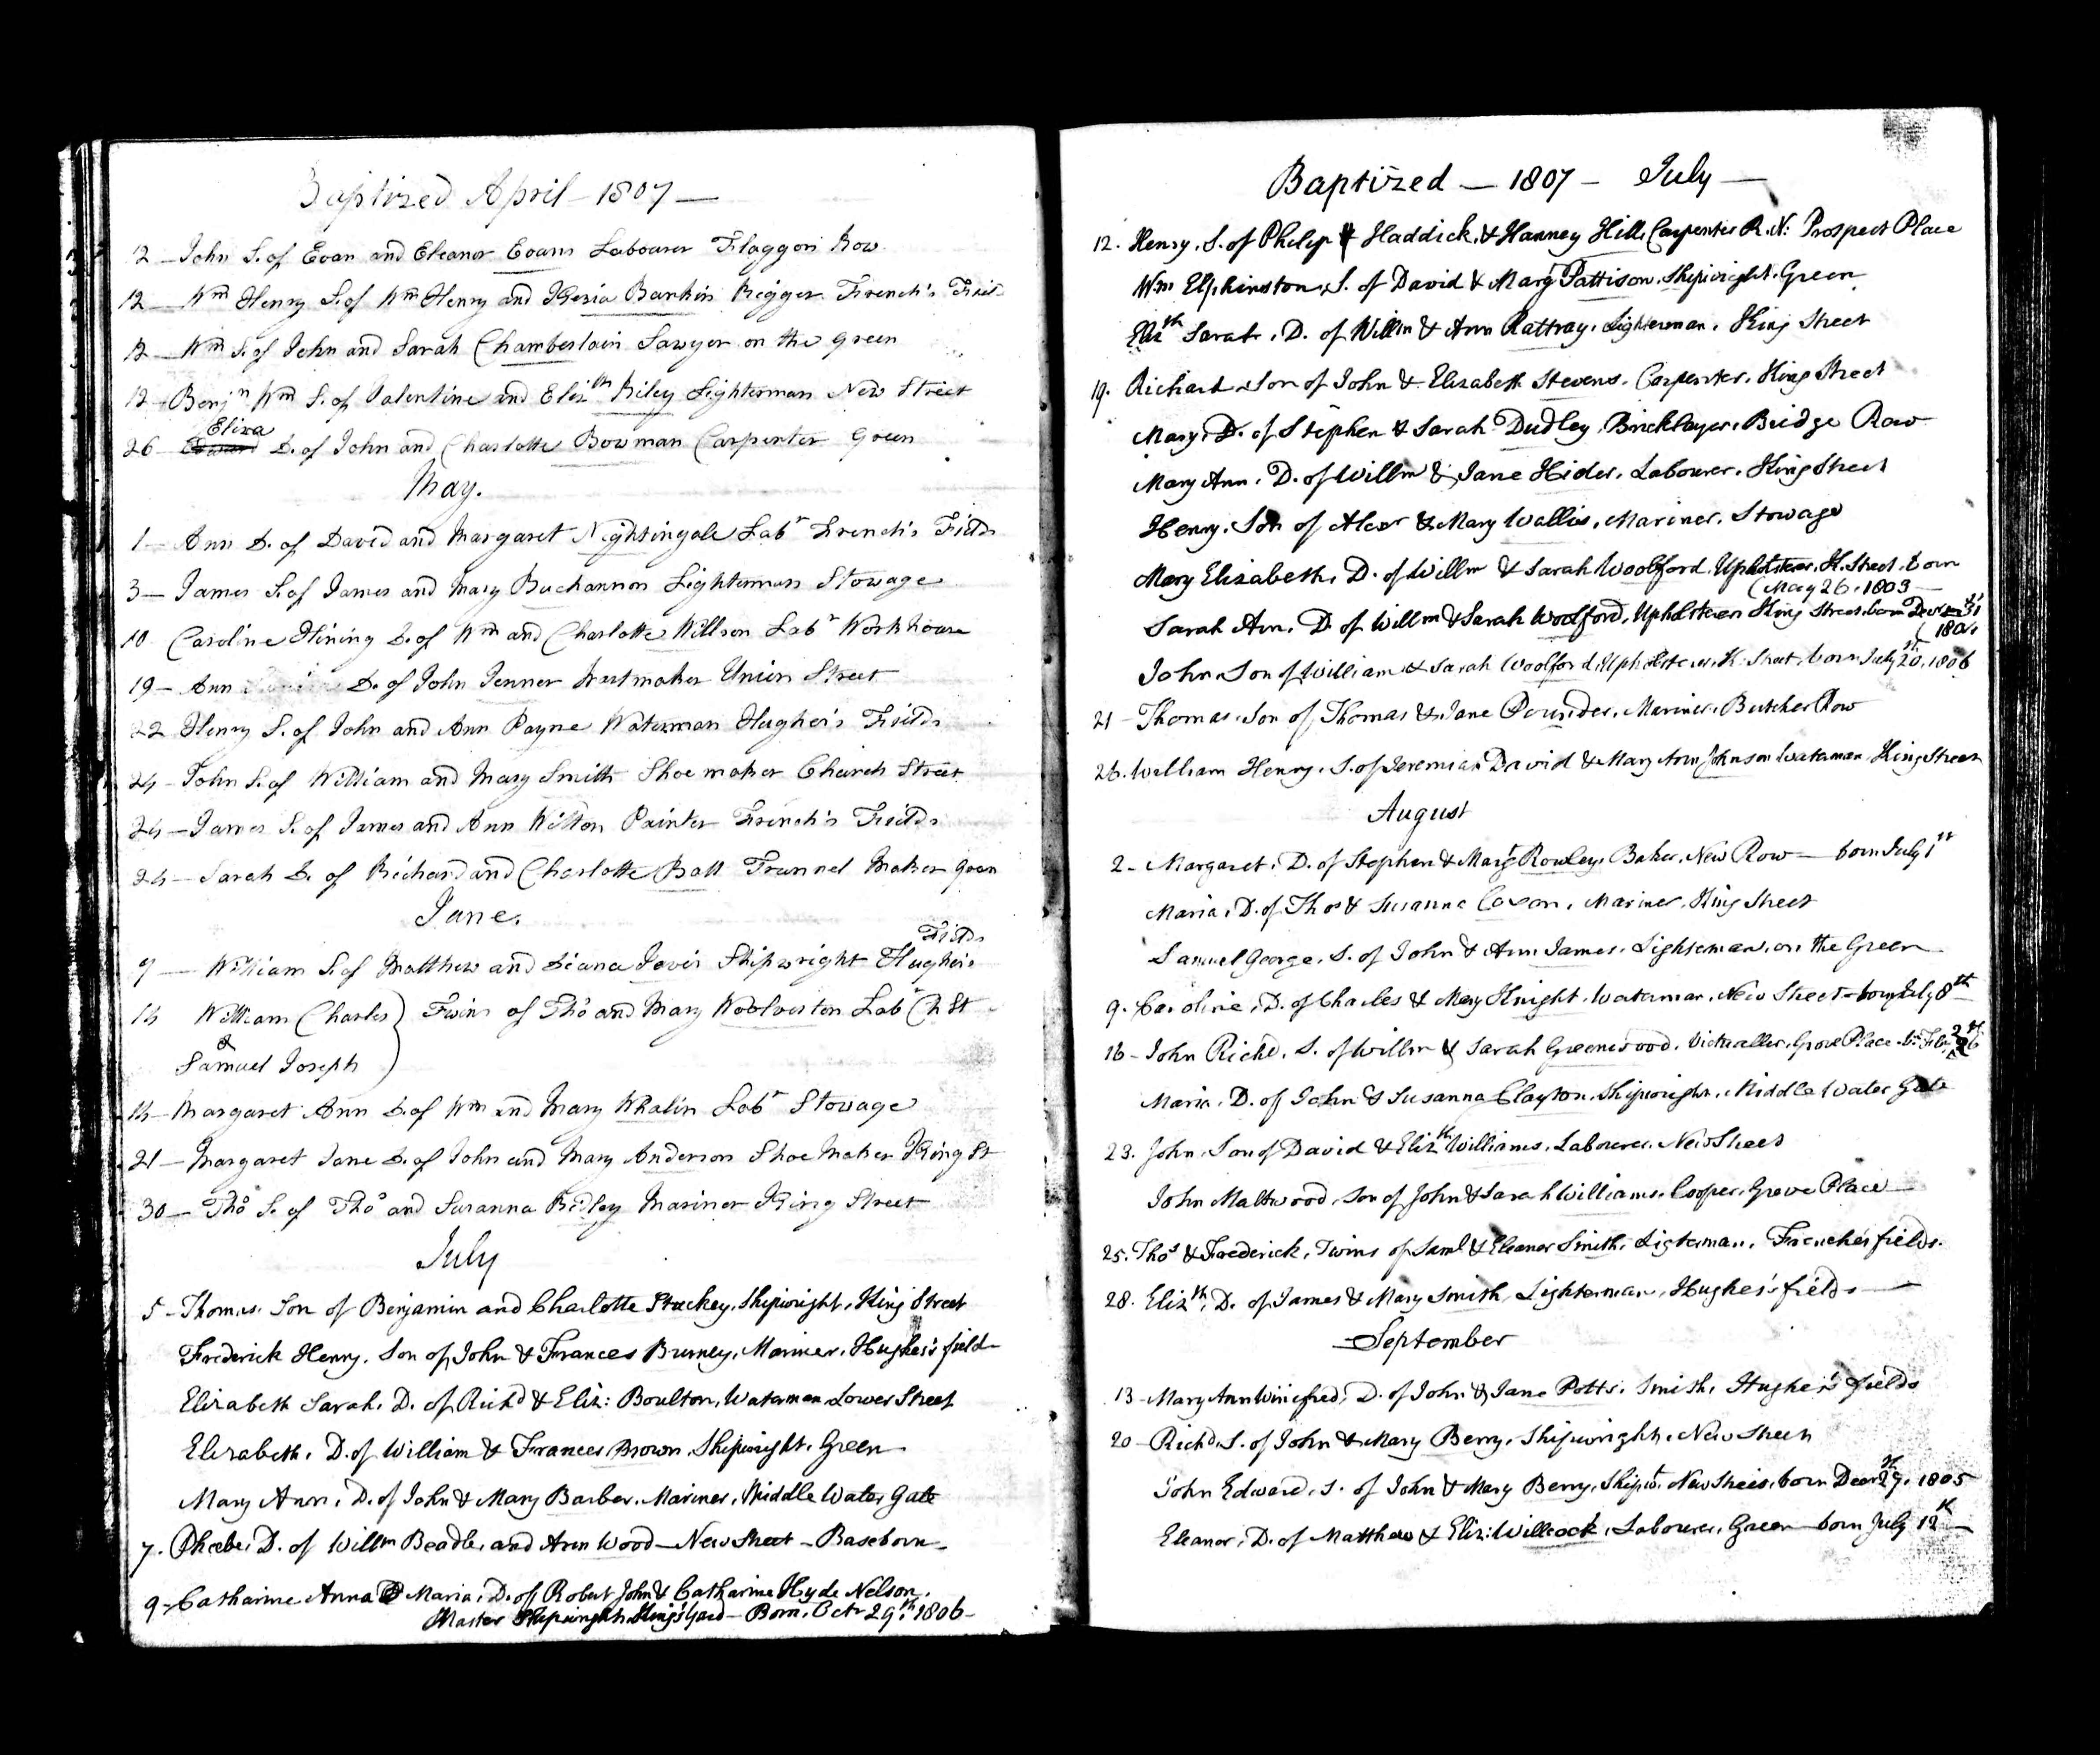 Baptized April - 1807 -
12 - John S. of Evan and Eleanor Evans Labourer Flaggon Row
12 - Wm Henry S. of Wm Henry and Keria Bankin Rigger French's
12 - Wm S. of John and Sarah Chamberlain Sawyer on the Green
12 - Benjn Wm S. of Valentine and Elizth Riley Lighterman New Street
Eliza
26 D. of John and Charlotte Bowman Carpenter Green
May.
1 - Ann D. of David and Margaret Nightingale Labr French's Fields
3 - James S. of James and Mary Buchannon Lighterman Stowage
10 Caroline Hining D. of Wm and Charlotte Willson Labr Workhouse
19 - Ann D. of John Jenner Union Street
22 Henry S. of John and Ann Payne Waterman Hughes's Fields
24 - John S. of William and Mary Smith Shoe maker Church Street
24 - James S. of James and Ann Wilton Painter French's Fields
24 - Sarah D. of Richard and Charlotte Ball Trunnel Maker Green
June.
Fields
7 - William S. of Matthew and Diana Shipwright Hughes's
14 William Charles } Twins of Thos and Mary Woolverton Labr Ch St
&
Samuel Joseph
14 - Margaret Ann D. of Wm and Mary Whalin Labr Stowage
21 - Margaret Jane D. of John and Mary Anderson Shoe Maker King St
30 - Thos S. of Thos and Susanna Ridley Mariner King Street
July
5 - Thomas. Son of Benjamin and Charlotte Stuckey, Shipwright, King Street
Frederick Henry. Son of John & Frances Burney, Mariner, Hughes's field
Elizabeth Sarah. D. of Richd & Eliz: Boulton, Waterman Lower Street
Elizabeth. D. of William & Frances Brown. Shipwright. Green
Mary Ann. D. of John & Mary Barber. Mariner, Middle Water Gate
7. Phœbe. D. of Willm Beadle, and Ann Wood - New Street - Baseborn -
9 - Catharine Anna Maria. D. of Robert John & Catharine Hyde Nelson.
Master Shipwright. King's Yard - Born. Octr 29th 1806 -
Baptized - 1807 - July -
12. Henry. S. of Philip Haddick. & Hanney Hill. Carpenter R.N: Prospect Place
Wm Elphinston. S. of David & Mary Pattison. Shipwright. Green
Elizth Sarah. D. of Willm & Ann Rattray. Lighterman. King Street
19. Richard. Son of John & Elizabeth Stevens. Carpenter. King Street
Mary. D. of Stephen & Sarah Dudley. Bricklayer. Bridge Row
Mary Ann. D. of Willm & Jane Hider. Labourer. King Street
Henry. Son of Alexr & Mary Wallis. Mariner. Stowage
Mary Elizabeth. D. of Willm & Sarah Woolford. Upholsterer. K. Street. born
(May 26. 1803 -
Sarah Ann. D of Willm & Sarah Woolford. Upholsterer King Street. born Decr 31
(1804
John. Son of William & Sarah Woolford. Upholsterer. K. Street. born July 20. 1806
21 - Thomas. Son of Thomas & Jane Pounder. Mariner. Butcher Row
26. William Henry. S. of Jeremiah David & Mary Ann Johnson Waterman King Street
August
2 - Margaret. D. of Stephen & Mary Rowley. Baker. New Row - born July 1st
Maria. D. of Thos & Susanna Coxon. Mariner. King Street
Samuel George. S. of John & Ann James. Lighterman. on the Green
9. Caroline. D. of Charles & Mary Knight. Waterman. New Street - born July 8th
16 - John Richd. S. of Willm & Sarah Greenwood. Victualler. Grove Place
Maria. D. of John & Susanna Clayton. Shipwright. Middle Water Gate
23. John. Son of David & Elizth Williams. Labourer. New Street
John Maltwood. Son of John & Sarah Williams. Cooper. Grove Place -
25. Thos & Frederick. Twins of Saml & Eleanor Smith. Ligterman. Frenche's fields.
28. Elizth. D. of James & Mary Smith Lighterman. Hughes's fields -
September
13 - Mary Ann Winifred. D. of John & Jane Potts. Smith. Hughes's fields
20 - Richd. S. of John & Mary Berry. Shipwright. New Street
John Edward. S. of John & Mary Berry. Shipwt. New Street. born Decr 29. 1805
Eleanor. D. of Matthew & Eliz: Willcock. Labourer. Green - born July 12th -